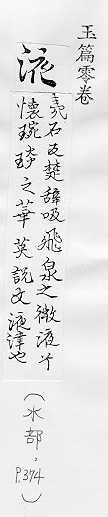 玉篇零卷
液
夷石反楚辞吸飛泉之微液兮
懷琬琰之華英說文液津也
(水部,P.374)